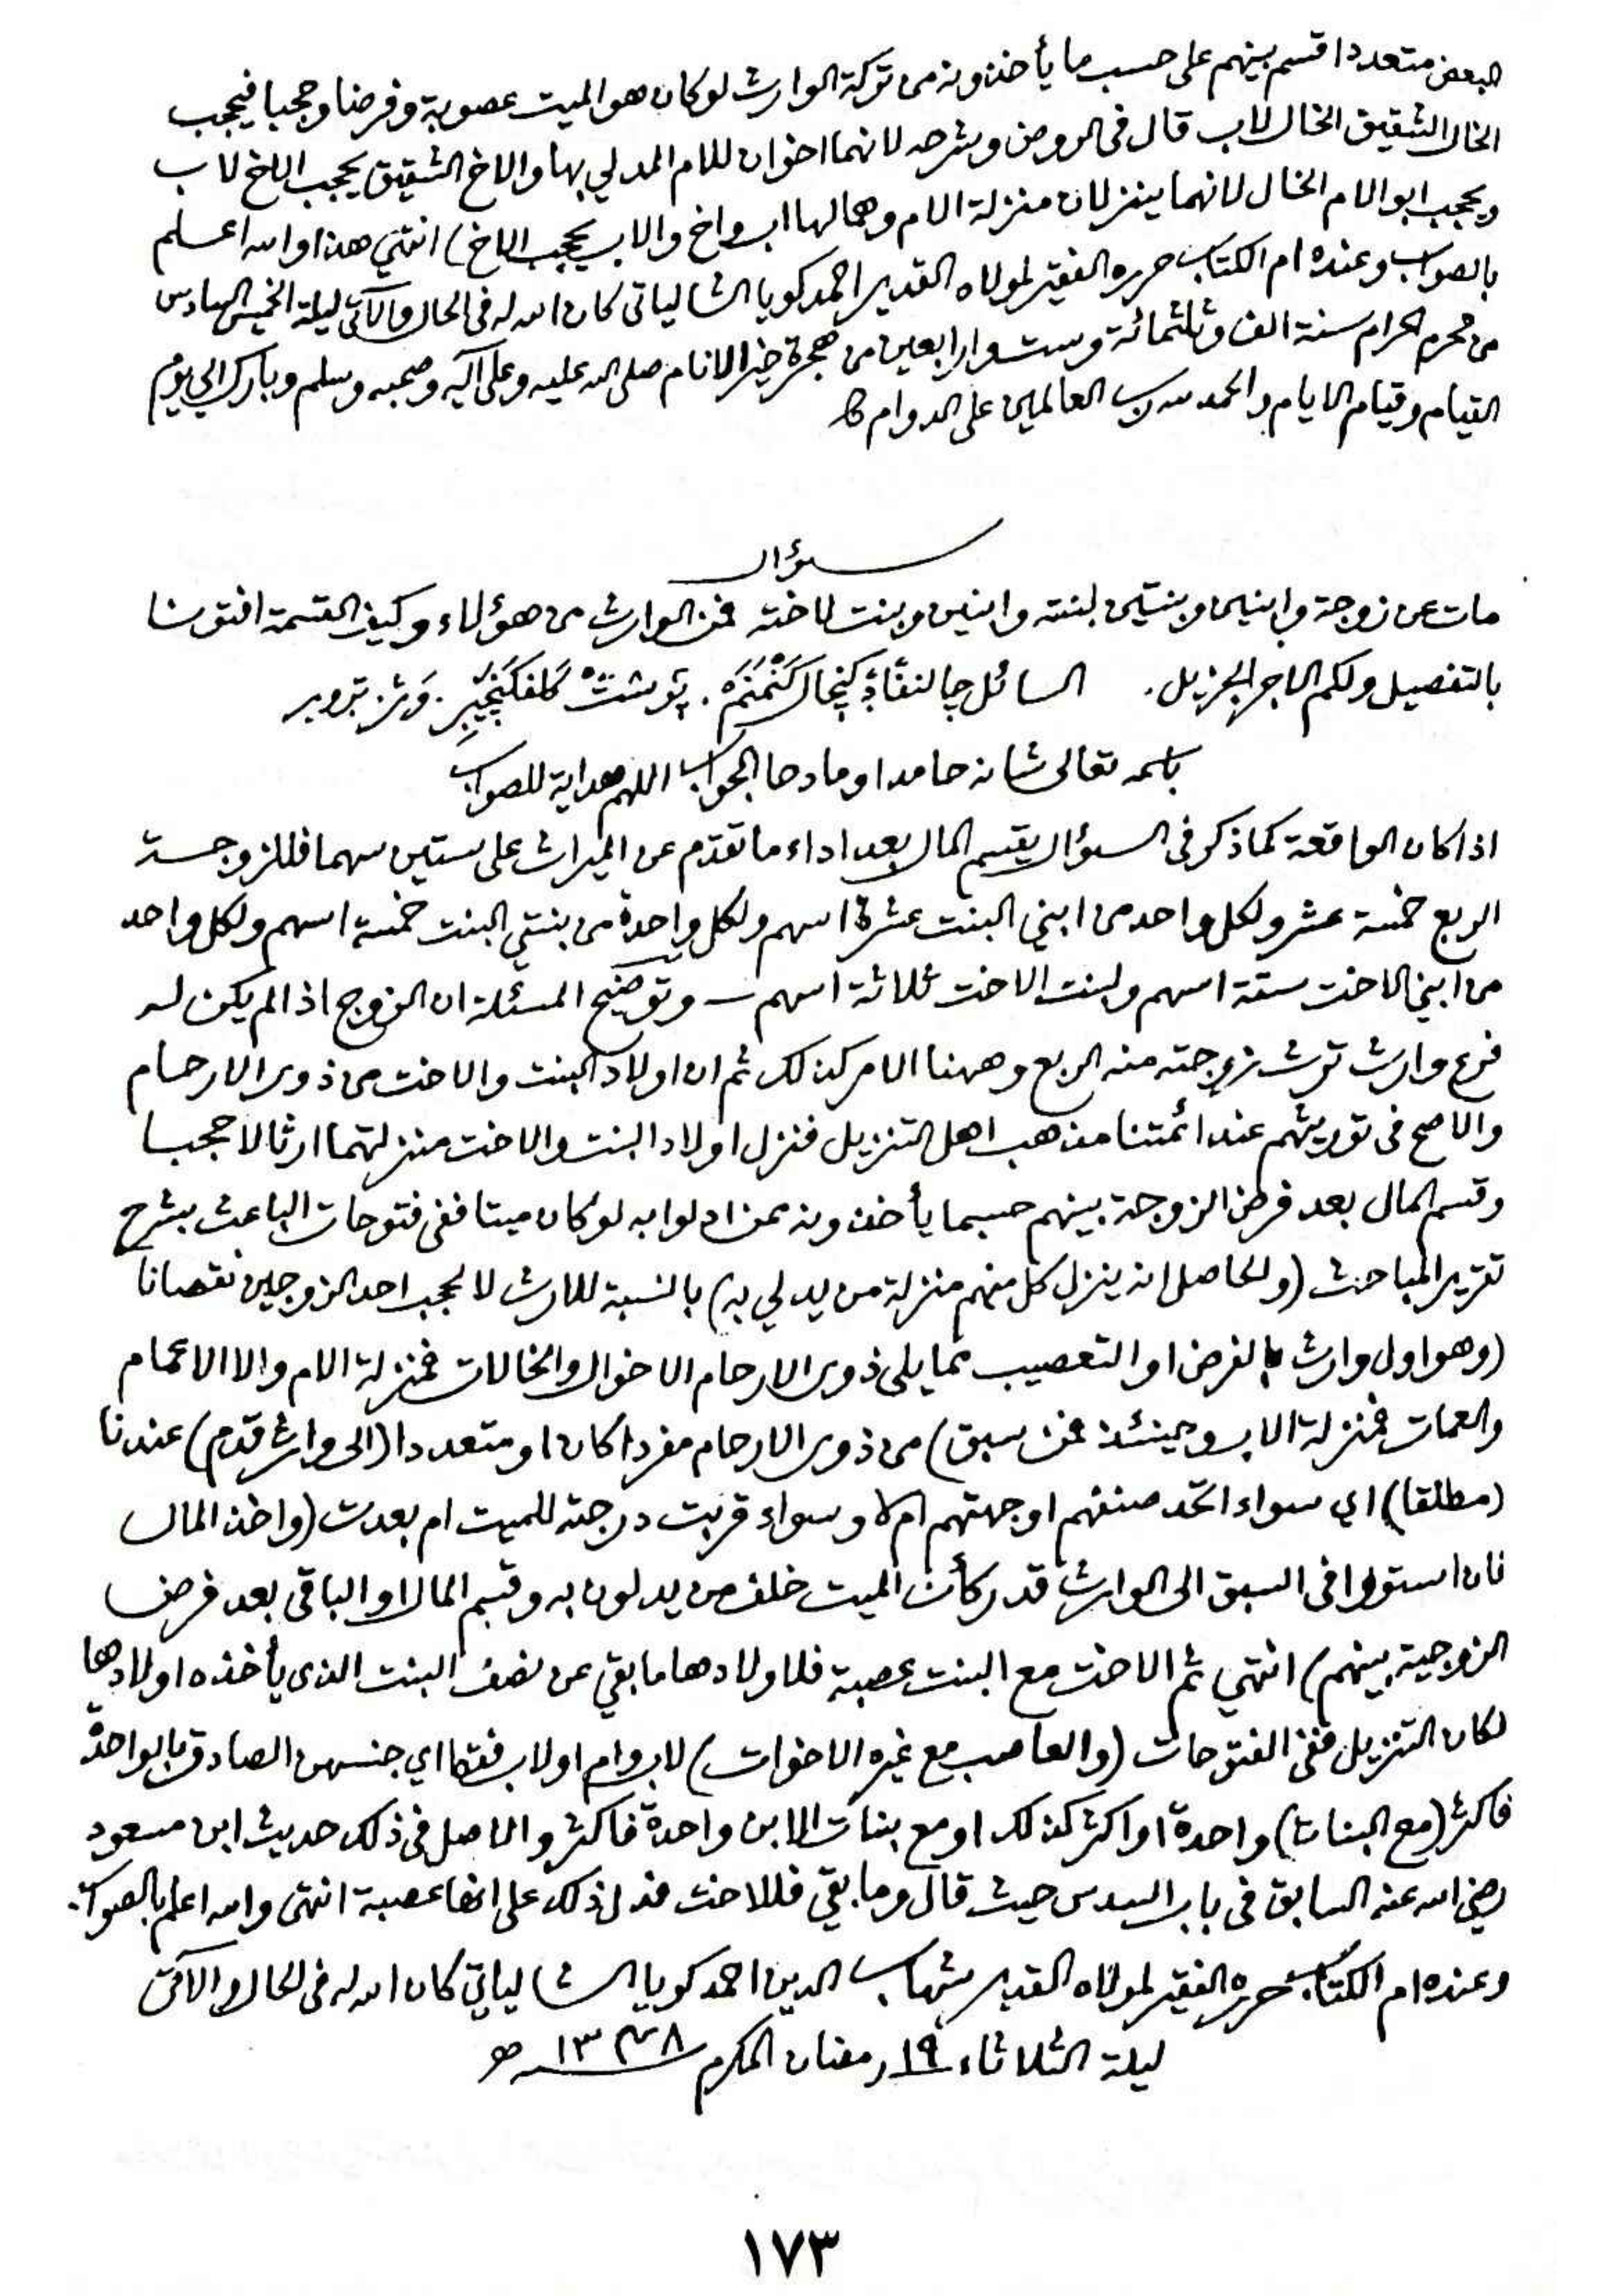 البعض متعددا قسم بينهم على حسب ما يأخذونه من تركة الوارث لو كان هو الميت عصوبة وفرضا وحجبا فيحجب
الخال الشقيق الخال لاب قال فى الروض وشرحه لانهما اخوان للام المدلي بها والاخ الشقيق يحجب الاخ لاب
ويحجب ابو الام الخال لانهما ينزلان منزلة الام وهما لها اب واخ والاب يحجب الاخ) انتهي هذا والله اعلم
بالصواب وعنده ام الكتاب حرره الفقير لمولاه القدير احمد كويا الشالياتى كان الله له فى الحال والآتى ليلة الخميس السادس
من محرم الحرام سنة الف وثلثمائة وست واربعين من هجرة خير الانام صلى الله عليه وعلى آله وصحبه وسلم وبارك الى يوم
القيام وقيام الايام والحمد لله رب العالمين على الدوام
سؤال
مات عن زوجة وابنين وبنتين لبنته وابنين وبنت لاخته فمن الوارث من هؤلاء وكيف القسمة افتونا
بالتفصيل ولكم الاجر الجزيل. السائل
باسمه تعالى شانه حامدا ومادحا الجواب اللهم هداية للصواب
اذا كان الواقعة كما ذكر فى السؤال يقسم المال بعد اداء ما تقدم عن الميراث على ستين سهما فللزوجة
الربع خمسة عشر ولكل واحد من ابني البنت عشرة اسهم ولكل واحدة من بنتي البنت خمسة اسهم ولكل واحد
من ابني الاخت ستة اسهم ولبنت الاخت ثلاثة اسهم ــ وتوضيح المسئلة ان الزوج اذا لم يكن له
فرع وارث ترث زوجته منه الربع وههنا الامر كذلك ثم ان اولاد البنت والاخت من ذوى الارحام
والاصح فى توريثهم عند ائمتنا مذهب اهل التنزيل فنزل اولاد البنت والاخت منزلتهما ارثا لا حجبا
وقسم المال بعد فرض الزوجة بينهم حسبما يأخذونه ممن ادلوا به لو كان ميتا ففى فتوحات الباعث بشرح
تقرير المباحث (والحاصل انه ينزل كل منهم منزلة من يدلي به) بالنسبة للارث لا لحجب احد الزوجين نقصانا
(وهو اول وارث بالفرض او التعصيب مما يلى ذوى الارحام الا الاخوال والخالات فمنزلة الام والا الاعمام
والعمات فمنزلة الاب وحينئذ فمن سبق) من ذوى الارحام مفردا كان او متعددا (الى وارث قدم) عندنا
(مطلقا) اي سواء اتحد صنفهم اوجهتهم ام لا وسواء قربت درجته للميت ام بعدت (واخذ المال
فان استووا فى السبق الى الوارث قدر كأن الميت خلف من يدلون به وقسم المال او الباقى بعد فرض
الزوجية بينهم) انتهي ثم الاخت مع البنت عصبة فلاولادها ما بقي عن نصف البنت الذى يأخذه اولادها
لكان التنزيل ففى الفتوحات (والعاصب مع غيره الاخوات) لاب وام او لاب فقط اي جنسهن الصادق بالواحدة
فاكثر (مع البنات) واحدة او اكثر كذلك او مع بنات الابن واحدة فاكثر والاصل فى ذلك حديث ابن مسعود
رضي الله عنه السابق فى باب السدس حيث قال وما بقي فللاخت فدل ذلك على انها عصبة انتهى والله اعلم بالصواب
وعنده ام الكتاب حرره الفقير لمولاه القدير شهاب الدين احمد كويا الشالياتي كان الله له فى الحال والآتى
ليلة الثلاثاء ١٩ رمضان المكرم ١٣٤٨ هـ
١٧٣